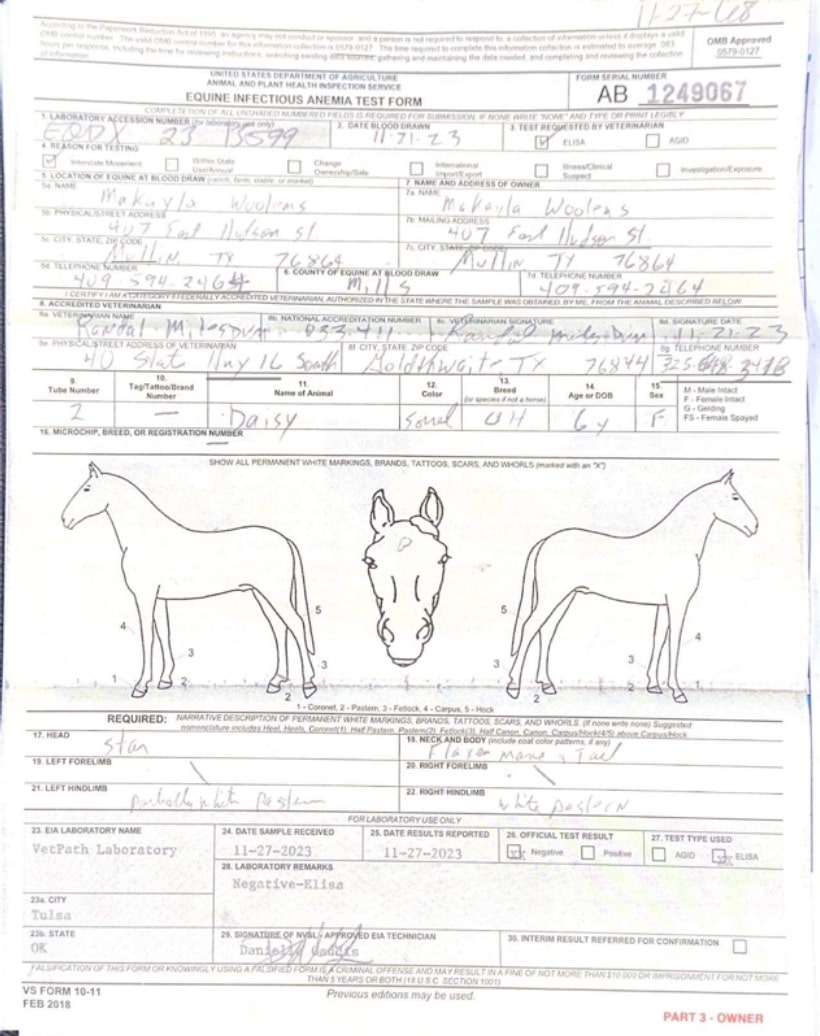 11-27-68
According to the Paperwork Reduction Act of 1995, an agency may not conduct or sponsor, and a person is not required to respond to, a collection of information unless it displays a valid
OMB control number. The valid OMB control number for this information collection is 0579-0127. The time required to complete this information collection is estimated to average .083
hours per response, including the time for reviewing instructions, searching existing data sources, gathering and maintaining the data needed, and completing and reviewing the collection
of information.
OMB Approved
0579-0127
UNITED STATES DEPARTMENT OF AGRICULTURE
ANIMAL AND PLANT HEALTH INSPECTION SERVICE
EQUINE INFECTIOUS ANEMIA TEST FORM
FORM SERIAL NUMBER
AB 1249067
COMPLETION OF ALL UNSHADED NUMBERED FIELDS IS REQUIRED FOR SUBMISSION, IF NONE WRITE "NONE" AND TYPE OR PRINT LEGIBLY
1. LABORATORY ACCESSION NUMBER (for laboratory use only)
EQDX 23 15599
2. DATE BLOOD DRAWN
11-21-23
3. TEST REQUESTED BY VETERINARIAN
ELISA AGID
4. REASON FOR TESTING
Interstate Movement Within State Use/Annual Change Ownership/Sale International Import/Export Illness/Clinical Suspect Investigation/Exposure
5. LOCATION OF EQUINE AT BLOOD DRAW (ranch, farm, stable, or market)
7. NAME AND ADDRESS OF OWNER
5a. NAME
Makayla Woolens
7a. NAME
Makayla Woolens
5b. PHYSICAL/STREET ADDRESS
407 East Hudson St
7b. MAILING ADDRESS
407 East Hudson St
5c. CITY, STATE, ZIP CODE
Mullin TX 76864
7c. CITY, STATE, ZIP CODE
Mullin TX 76864
5d. TELEPHONE NUMBER
409-594-2464
6. COUNTY OF EQUINE AT BLOOD DRAW
Mills
7d. TELEPHONE NUMBER
409-594-2464
I CERTIFY I AM A CATEGORY II FEDERALLY ACCREDITED VETERINARIAN, AUTHORIZED IN THE STATE WHERE THE SAMPLE WAS OBTAINED, BY ME, FROM THE ANIMAL DESCRIBED BELOW
8. ACCREDITED VETERINARIAN
8a. VETERINARIAN NAME
Randal Miles DVM
8b. NATIONAL ACCREDITATION NUMBER
033411
8c. VETERINARIAN SIGNATURE
Randal Miles DVM
8d. SIGNATURE DATE
11-21-23
8e. PHYSICAL/STREET ADDRESS OF VETERINARIAN
40 State Hwy 16 South
8f. CITY, STATE, ZIP CODE
Goldthwaite TX 76844
8g. TELEPHONE NUMBER
325-648-3418
9. Tube Number
10. Tag/Tattoo/Brand Number
11. Name of Animal
12. Color
13. Breed (or species if not a horse)
14. Age or DOB
15. Sex
M - Male Intact
F - Female Intact
G - Gelding
FS - Female Spayed
2 — Daisy Sorrel QH 6y F
16. MICROCHIP, BREED, OR REGISTRATION NUMBER
—
SHOW ALL PERMANENT WHITE MARKINGS, BRANDS, TATTOOS, SCARS, AND WHORLS (marked with an "X")
5 5
4 4
3 3
3 3
1 2 2 1
2 2
1 - Coronet, 2 - Pastern, 3 - Fetlock, 4 - Carpus, 5 - Hock
REQUIRED: NARRATIVE DESCRIPTION OF PERMANENT WHITE MARKINGS, BRANDS, TATTOOS, SCARS, AND WHORLS. (If none write none) Suggested
nomenclature includes Heel, Heels, Coronet(1), Half Pastern, Pastern(2), Fetlock(3), Half Canon, Canon, Carpus/Hock(4/5) above Carpus/Hock
17. HEAD
Star
18. NECK AND BODY (include coat color patterns, if any)
Flaxen mane & Tail
19. LEFT FORELIMB
20. RIGHT FORELIMB
21. LEFT HINDLIMB
partially white Pastern
22. RIGHT HINDLIMB
white pastern
FOR LABORATORY USE ONLY
23. EIA LABORATORY NAME
VetPath Laboratory
24. DATE SAMPLE RECEIVED
11-27-2023
25. DATE RESULTS REPORTED
11-27-2023
26. OFFICIAL TEST RESULT
Negative Positive
27. TEST TYPE USED
AGID ELISA
28. LABORATORY REMARKS
Negative-Elisa
23a. CITY
Tulsa
23b. STATE
OK
29. SIGNATURE OF NVSL - APPROVED EIA TECHNICIAN
Danielle Gaddis
30. INTERIM RESULT REFERRED FOR CONFIRMATION
FALSIFICATION OF THIS FORM OR KNOWINGLY USING A FALSIFIED FORM IS A CRIMINAL OFFENSE AND MAY RESULT IN A FINE OF NOT MORE THAN $10,000 OR IMPRISONMENT FOR NOT MORE
THAN 5 YEARS OR BOTH (18 U.S.C. SECTION 1001)
VS FORM 10-11
FEB 2018
Previous editions may be used.
PART 3 - OWNER